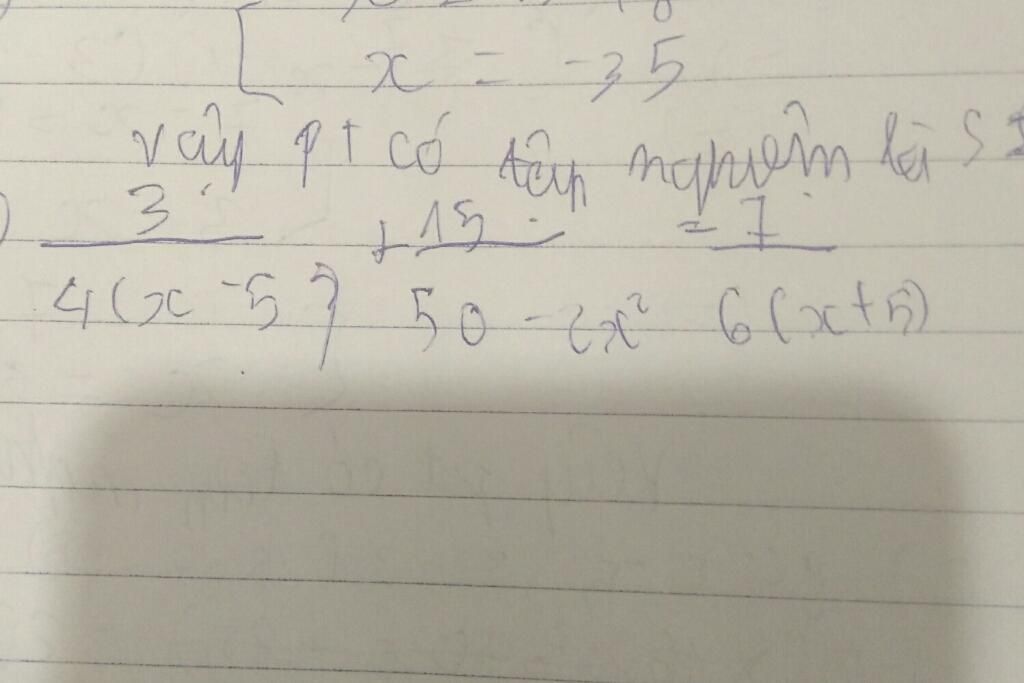 x = -35
vậy pt có tập nghiệm là S =
) 3 + 15 = 7
4(x - 5) 50 - 2x² 6(x + 5)